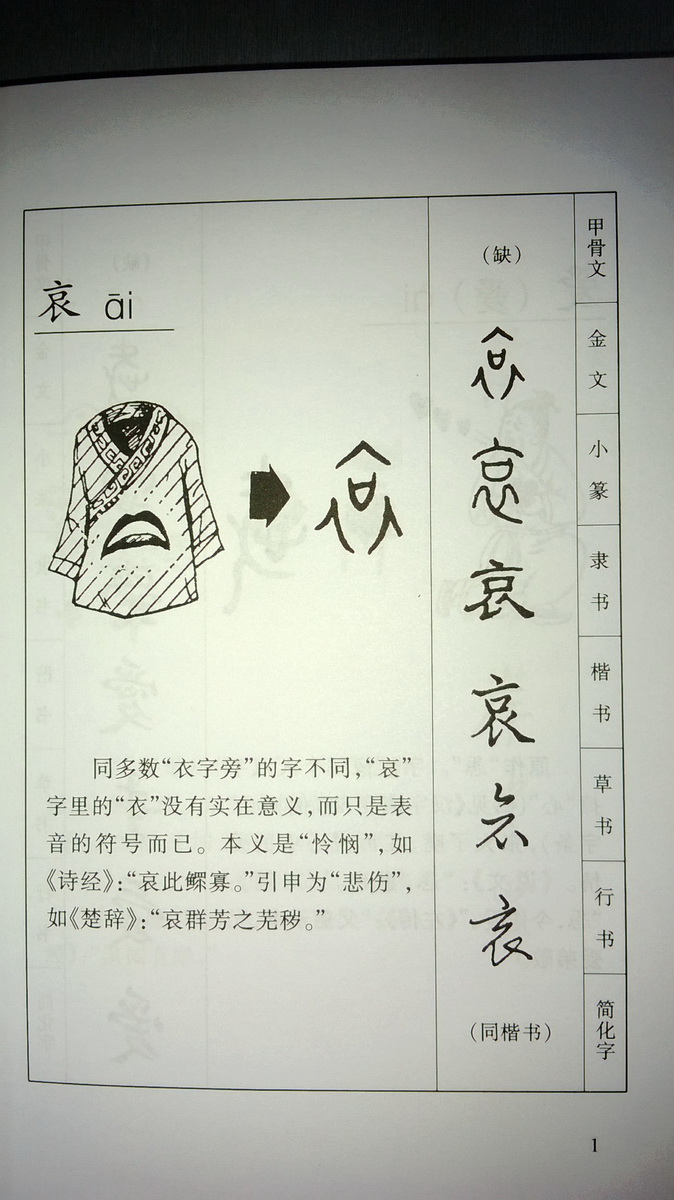 哀 āi
同多数“衣字旁”的字不同，“哀”
字里的“衣”没有实在意义，而只是表
音的符号而已。本义是“怜悯”，如
《诗经》：“哀此鳏寡。”引申为“悲伤”，
如《楚辞》：“哀群芳之芜秽。”
甲骨文 （缺）
金文
小篆 哀
隶书 哀
楷书 哀
草书 哀
行书 哀
简化字 （同楷书）
1